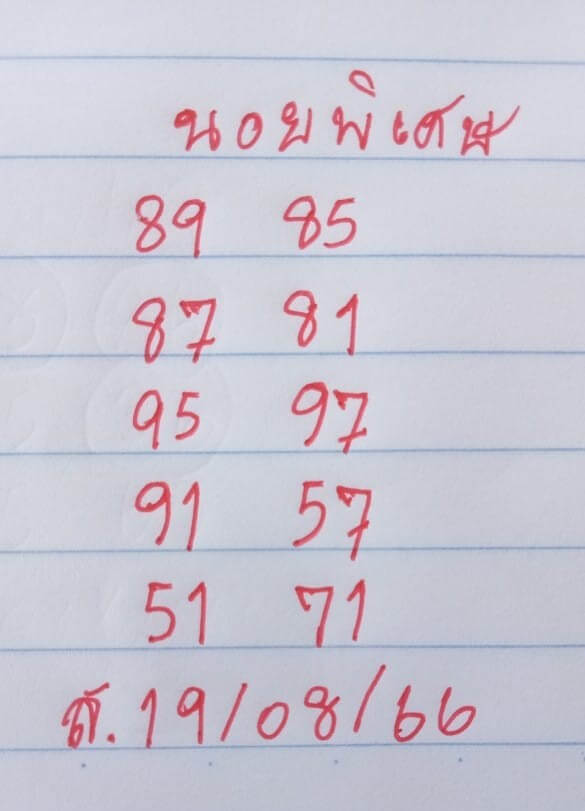 นอยพิเศษ
89 85
87 81
95 97
91 57
51 71
ส. 19/08/66